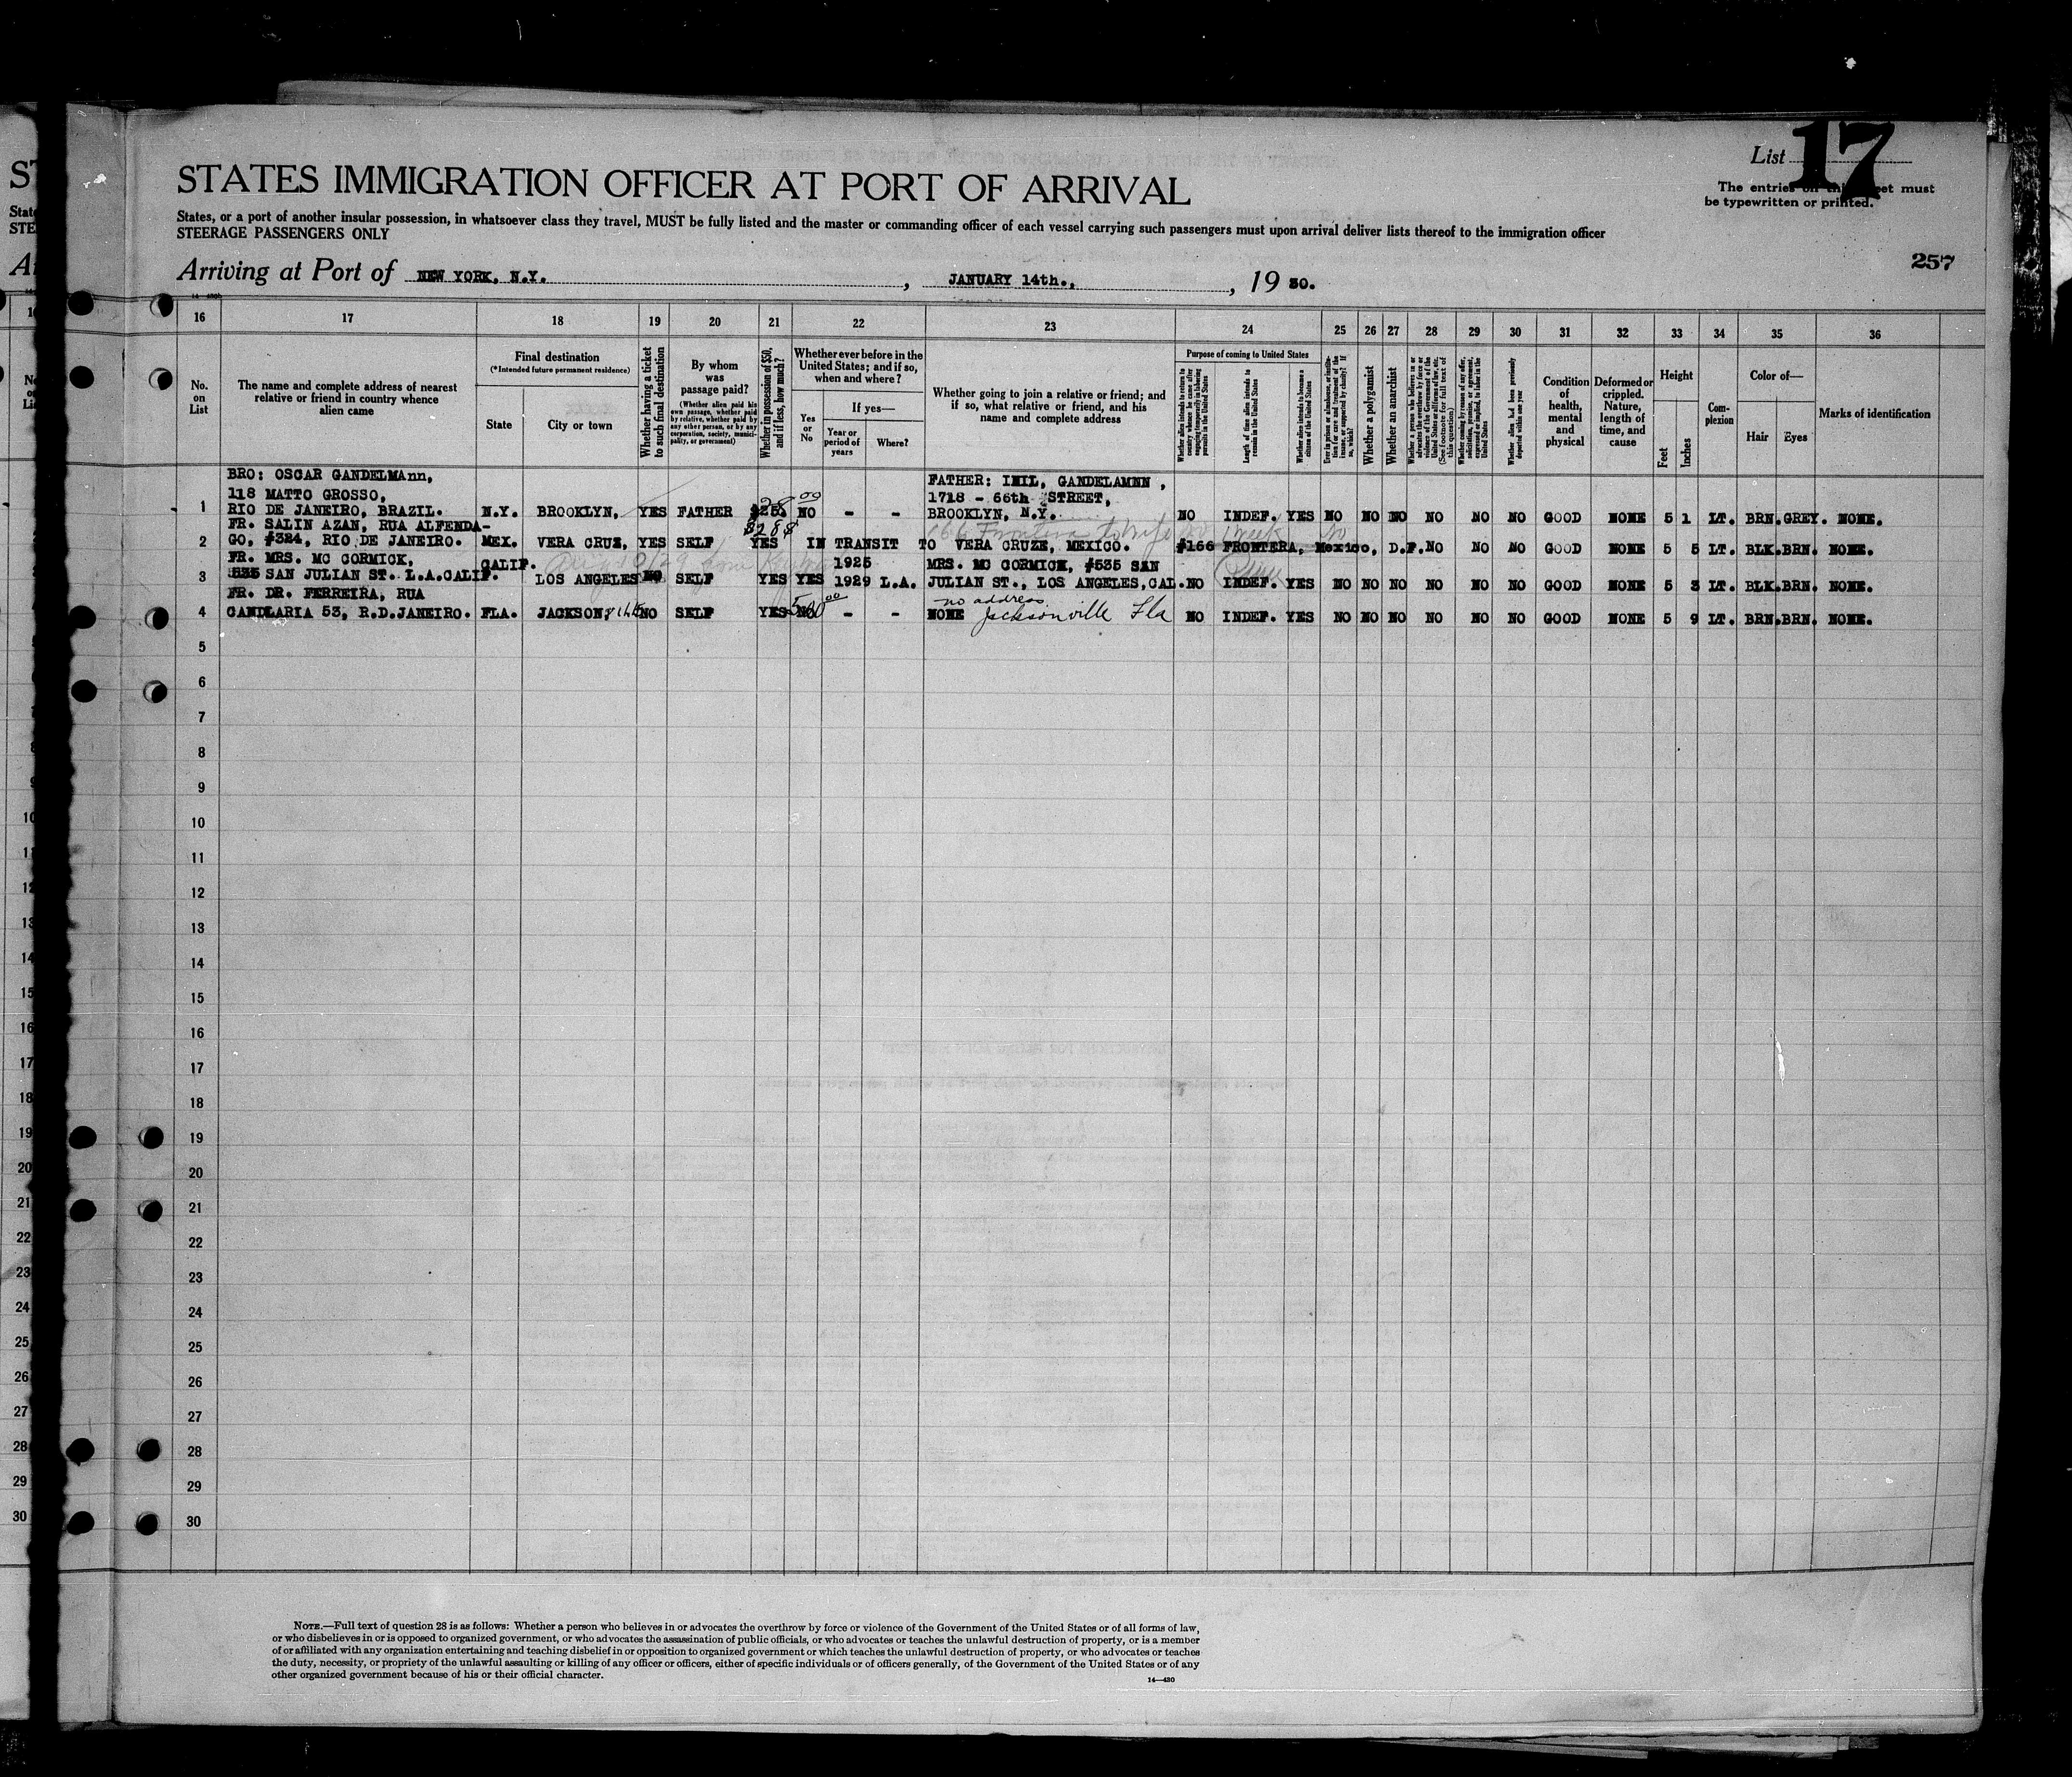 List 17
STATES IMMIGRATION OFFICER AT PORT OF ARRIVAL
The entries on this sheet must
be typewritten or printed.
States, or a port of another insular possession, in whatsoever class they travel, MUST be fully listed and the master or commanding officer of each vessel carrying such passengers must upon arrival deliver lists thereof to the immigration officer
STEERAGE PASSENGERS ONLY
257
Arriving at Port of NEW YORK, N.Y. , JANUARY 14th., , 19 30.
16 17 18 19 20 21 22 23 24 25 26 27 28 29 30 31 32 33 34 35 36
No. on List
The name and complete address of nearest relative or friend in country whence alien came
Final destination
(*Intended future permanent residence)
State
City or town
Whether having a ticket to such final destination
By whom was passage paid?
(Whether alien paid his own passage, whether paid by relative, whether paid by any other person, or by any corporation, society, municipality, or government)
Whether in possession of $50, and if less, how much?
Whether ever before in the United States; and if so, when and where?
Yes or No
If yes—
Year or period of years
Where?
Whether going to join a relative or friend; and if so, what relative or friend, and his name and complete address
Purpose of coming to United States
Length of time alien intends to remain in the United States
Whether alien intends to become a citizen of the United States
Whether a polygamist
Whether an anarchist
Condition of health, mental and physical
Deformed or crippled. Nature, length of time, and cause
Height
Feet
Inches
Complexion
Color of—
Hair
Eyes
Marks of identification
BRO: OSCAR GANDELMAnn,
118 MATTO GROSSO,
FATHER: INIL, GANDELAMNN ,
1718 - 66th STREET,
1 RIO DE JANEIRO, BRAZIL. N.Y. BROOKLYN, YES FATHER NO - - BROOKLYN, N.Y. NO INDEF. YES NO NO NO NO NO NO GOOD NONE 5 1 LT. BRN. GREY. NONE.
FR. SALIN AZAN, RUA ALFENDA-
2 GO, #324, RIO DE JANEIRO. MEX. VERA CRUZ, YES SELF YES IN TRANSIT TO VERA CRUZE, MEXICO. #166 FRONTERA, Mexico, D.F. NO NO NO GOOD NONE 5 5 LT. BLK. BRN. NONE.
FR. MRS. MC CORMICK, CALIF. 1925 MRS. MC CORMICK, #535 SAN
3 535 SAN JULIAN ST. L.A.CALIF. LOS ANGELES NO SELF YES YES 1929 L.A. JULIAN ST., LOS ANGELES, CAL. NO INDEF. YES NO NO NO NO NO NO GOOD NONE 5 3 LT. BLK. BRN. NONE.
FR. DR. FERREIRA, RUA
no address
4 CANDLARIA 53, R.D.JANEIRO. FLA. JACKSON, NO SELF YES 500 00 NO - - NONE Jacksonville Fla NO INDEF. YES NO NO NO NO NO NO GOOD NONE 5 9 LT. BRN. BRN. NONE.
5
6
7
8
9
10
11
12
13
14
15
16
17
18
19
20
21
22
23
24
25
26
27
28
29
30
NOTE.—Full text of question 28 is as follows: Whether a person who believes in or advocates the overthrow by force or violence of the Government of the United States or of all forms of law,
or who disbelieves in or is opposed to organized government, or who advocates the assassination of public officials, or who advocates or teaches the unlawful destruction of property, or is a member
of or affiliated with any organization entertaining and teaching disbelief in or opposition to organized government or which teaches the unlawful destruction of property, or who advocates or teaches
the duty, necessity, or propriety of the unlawful assaulting or killing of any officer or officers, either of specific individuals or of officers generally, of the Government of the United States or of any
other organized government because of his or their official character.
14—430